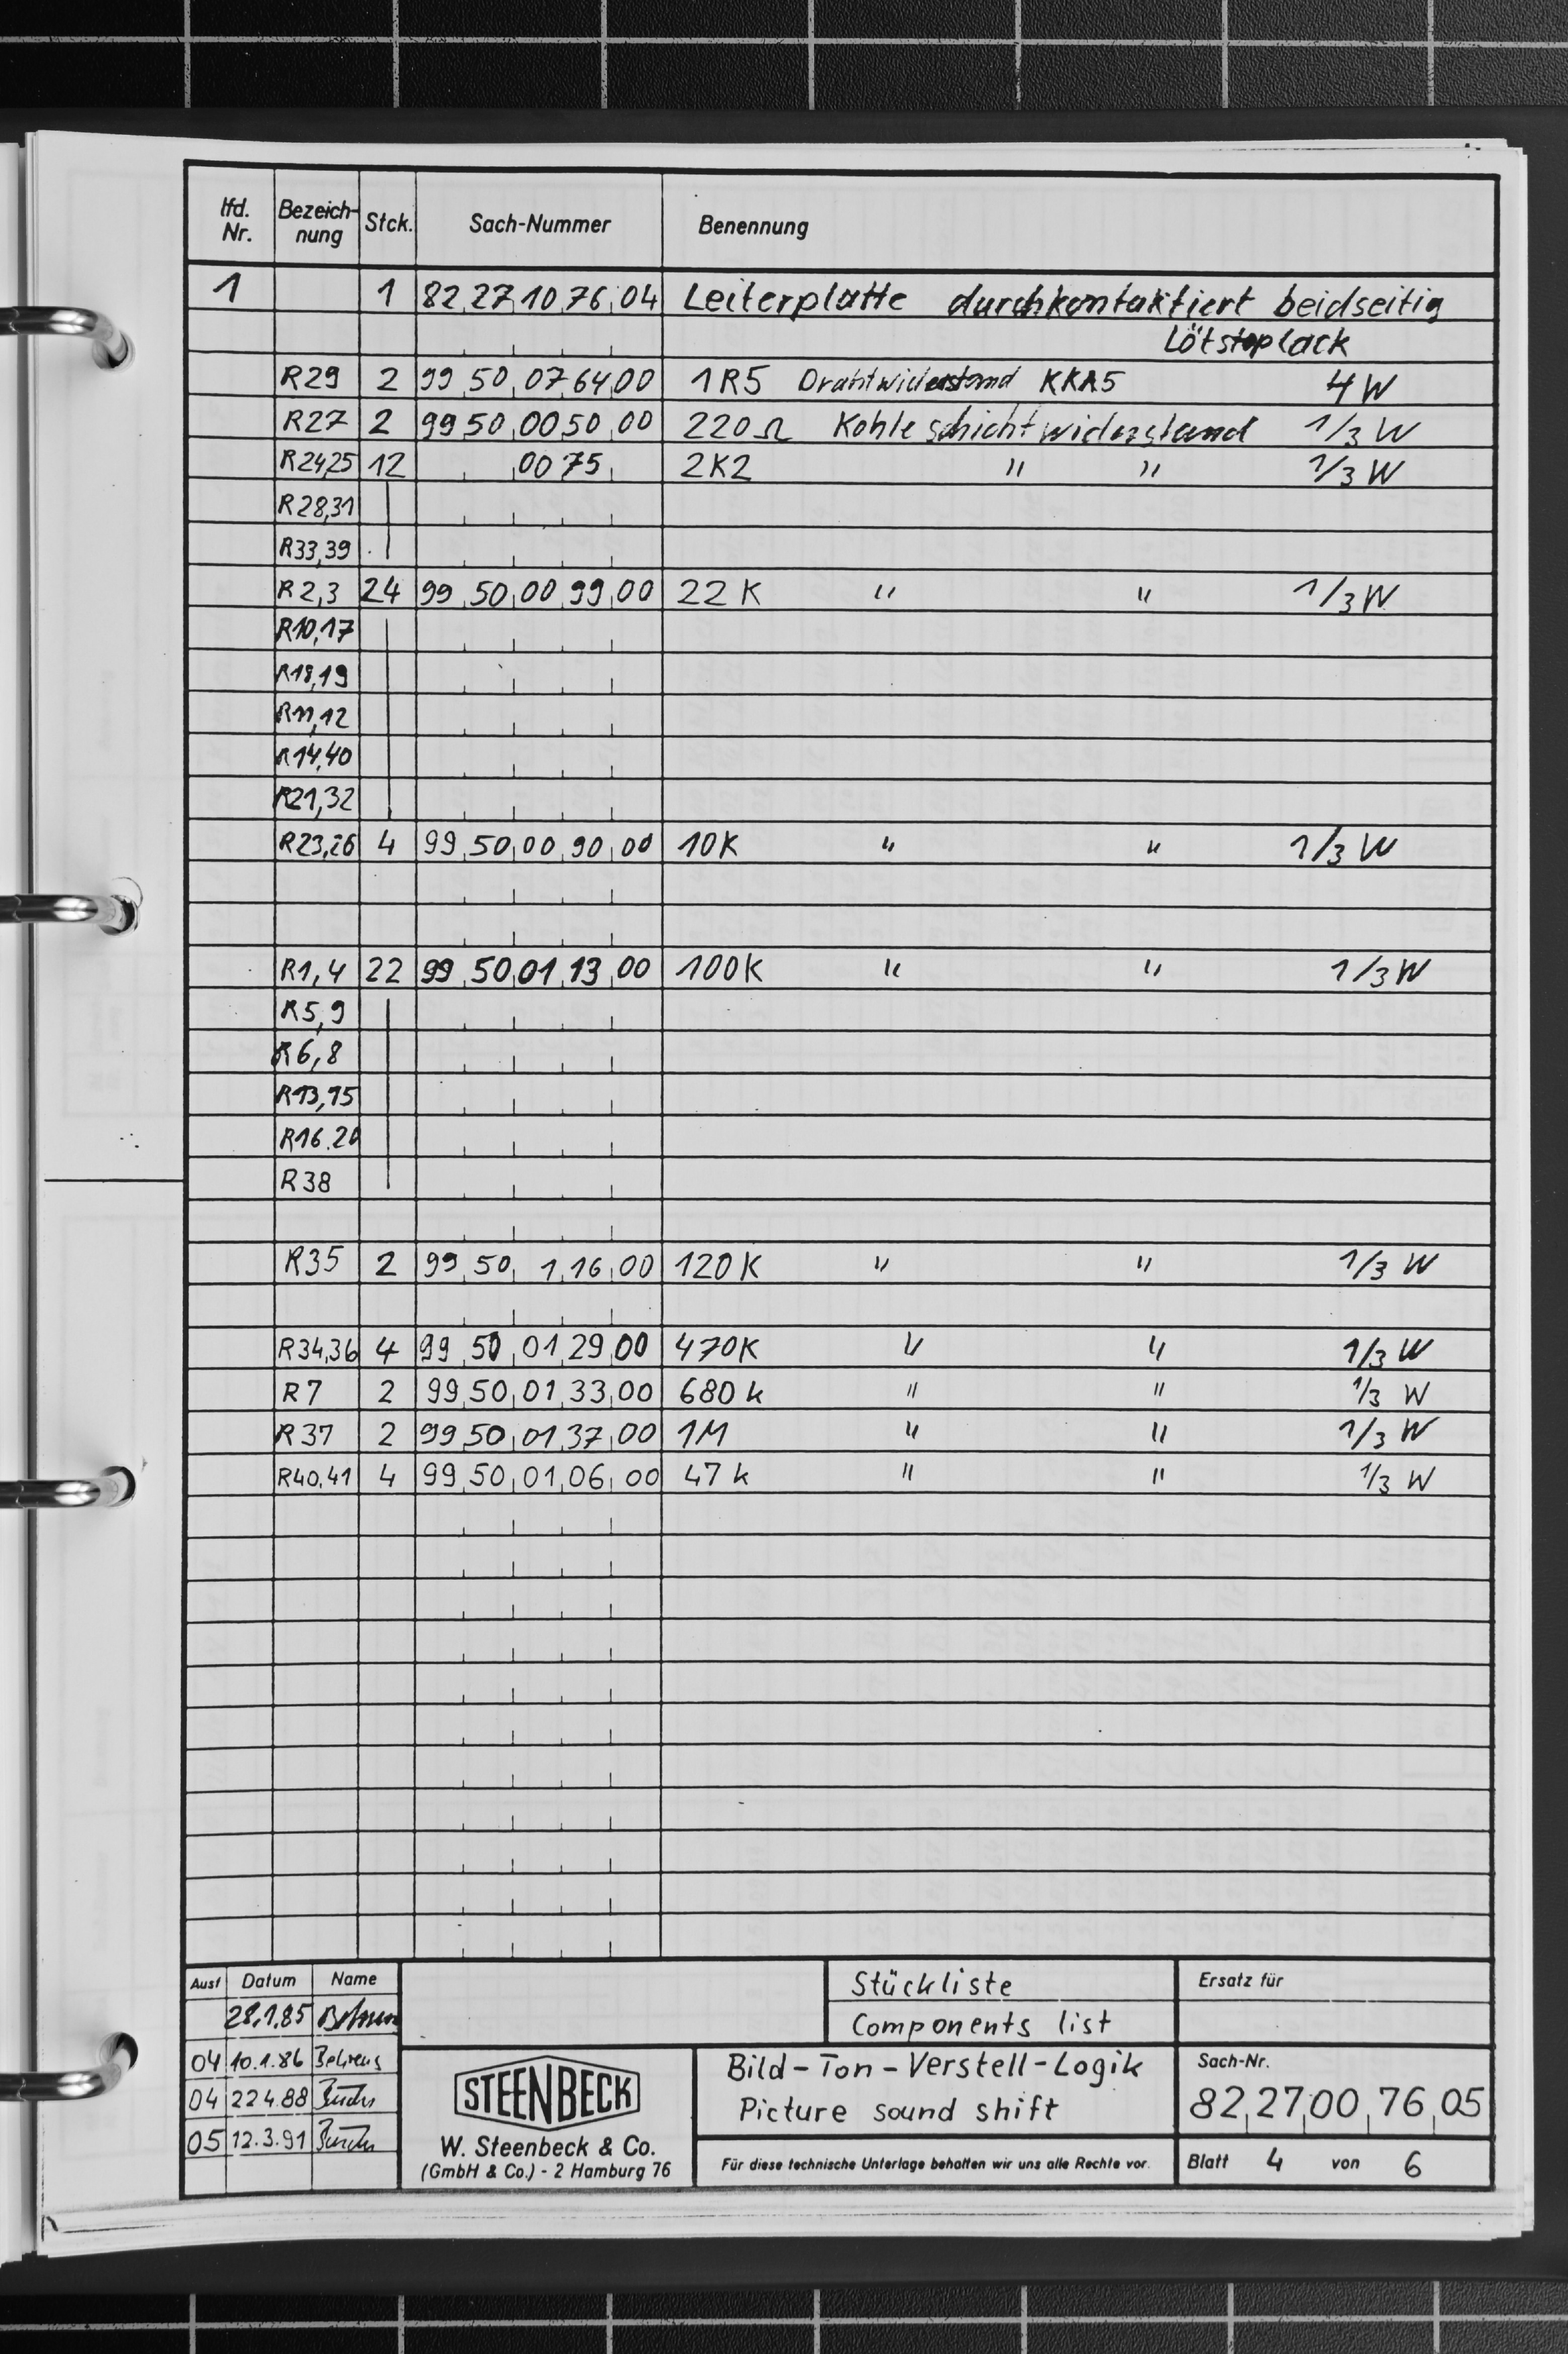 lfd. Nr. Bezeich-nung Stck. Sach-Nummer Benennung
1 1 82,27,10,76,04 Leiterplatte durchkontaktiert beidseitig
Lötstoplack
R29 2 99,50,07,64,00 1R5 Drahtwiderstand KKA5 4W
R27 2 99,50,00,50,00 220Ω Kohleschichtwiderstand 1/3 W
R24,25 12 00 75 2K2 " " 1/3 W
R28,31
R33,39
R2,3 24 99,50,00,99,00 22 K " " 1/3 W
R10,17
R18,19
R11,12
R14,40
R21,32
R23,26 4 99,50,00,90,00 10K " " 1/3 W
R1,4 22 99,50,01,13,00 100K " " 1/3 W
R5,9
R6,8
R13,15
R16.20
R38
R35 2 99,50, 1,16,00 120K " " 1/3 W
R34,36 4 99,50,01,29,00 470K " " 1/3 W
R7 2 99,50,01,33,00 680k " " 1/3 W
R37 2 99,50,01,37,00 1M " " 1/3 W
R40,41 4 99,50,01,06,00 47k " " 1/3 W
Ausf Datum Name
28.1.85
04 10.1.86 Behrens
04 22.4.88
05 12.3.91
STEENBECK
W. Steenbeck & Co.
(GmbH & Co.) - 2 Hamburg 76
Stückliste
Components list
Bild-Ton-Verstell-Logik
Picture sound shift
Für diese technische Unterlage behalten wir uns alle Rechte vor.
Ersatz für
Sach-Nr.
82,27,00,76,05
Blatt 4 von 6